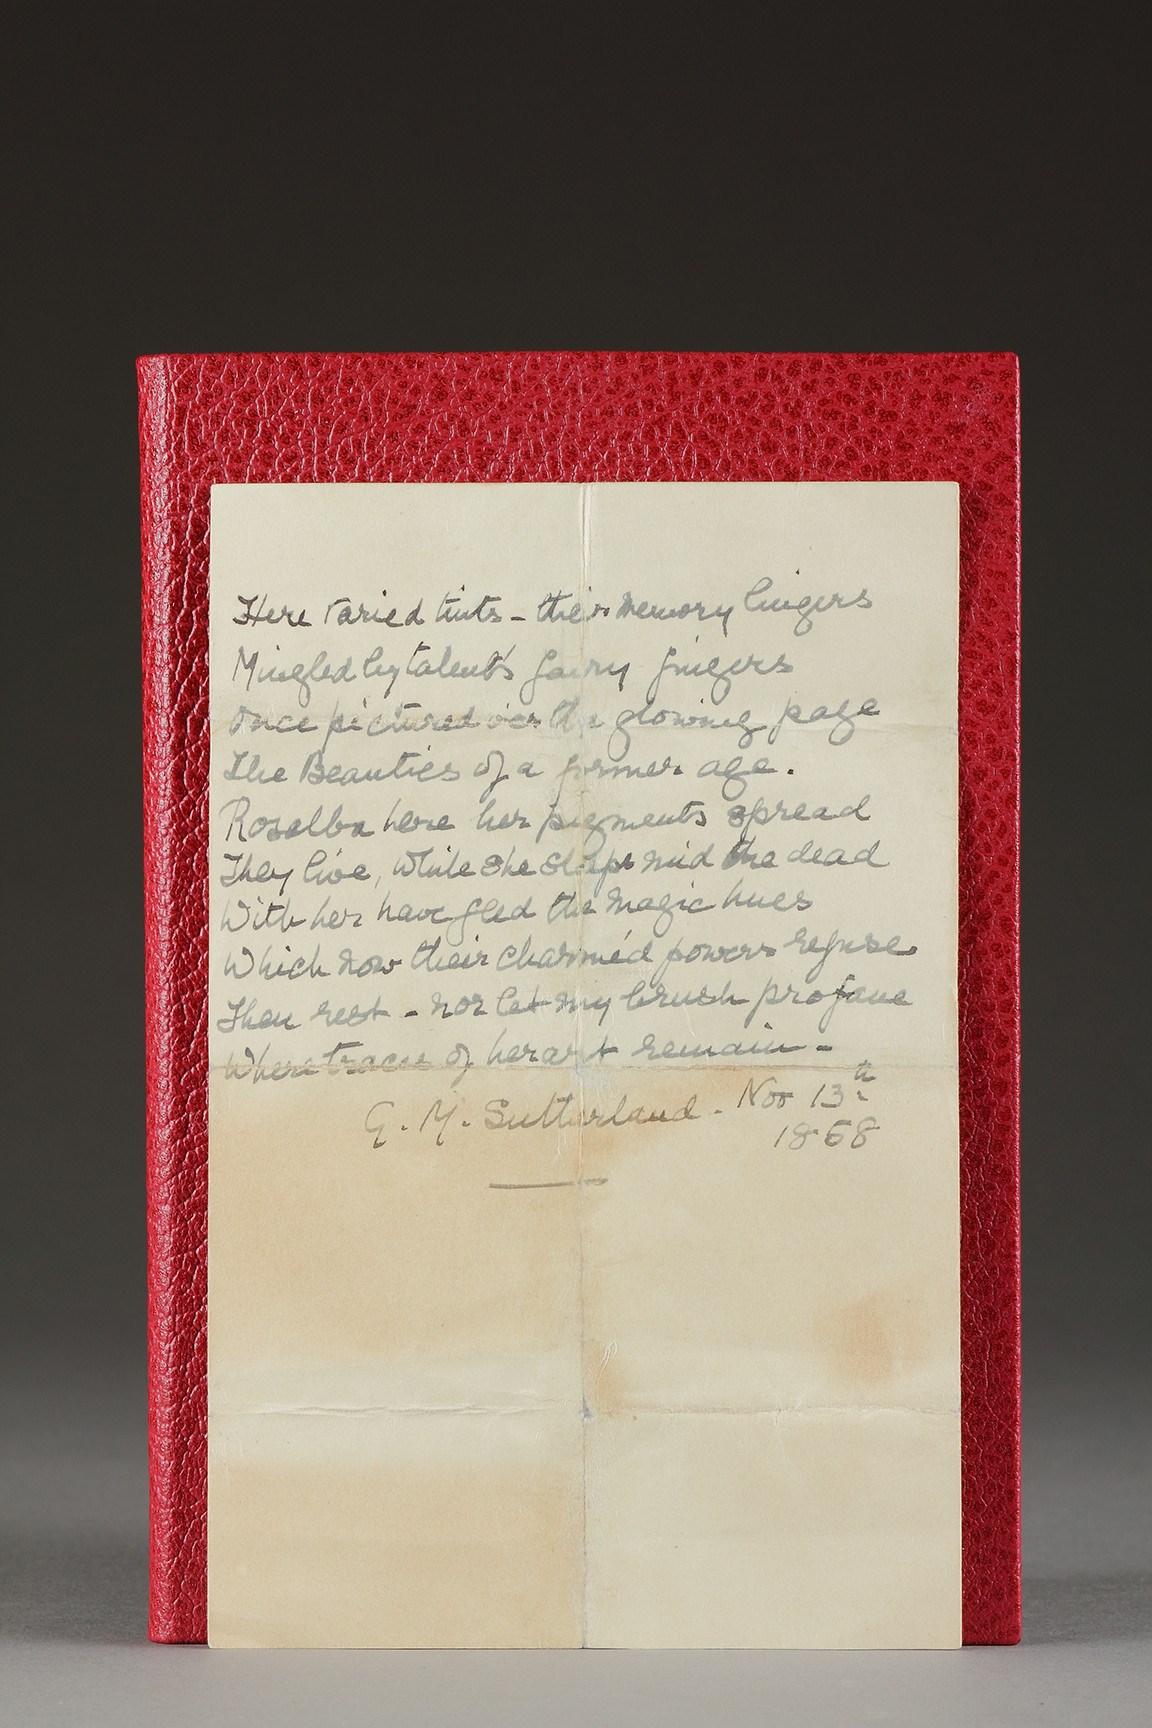 Here varied tints – their memory lingers
Mingled by talent's fairy fingers
Once pictured o'er the glowing page
The Beauties of a former age.
Rosalba here her pigments spread
They live, while she sleeps mid the dead
With her have fled the magic hues
Which now their charméd powers refuse
Then rest – nor let my brush profane
Where traces of her art remain –
G. M. Sutherland – Nov 13th
1868